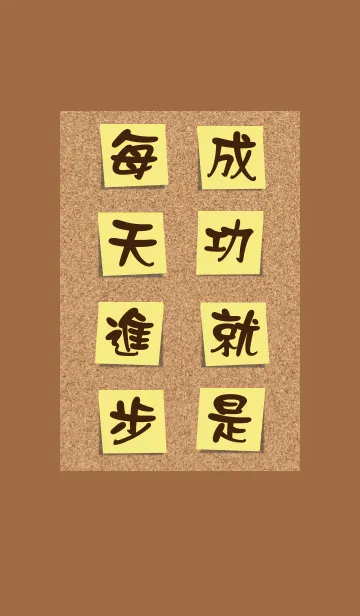 成功就是
每天進步